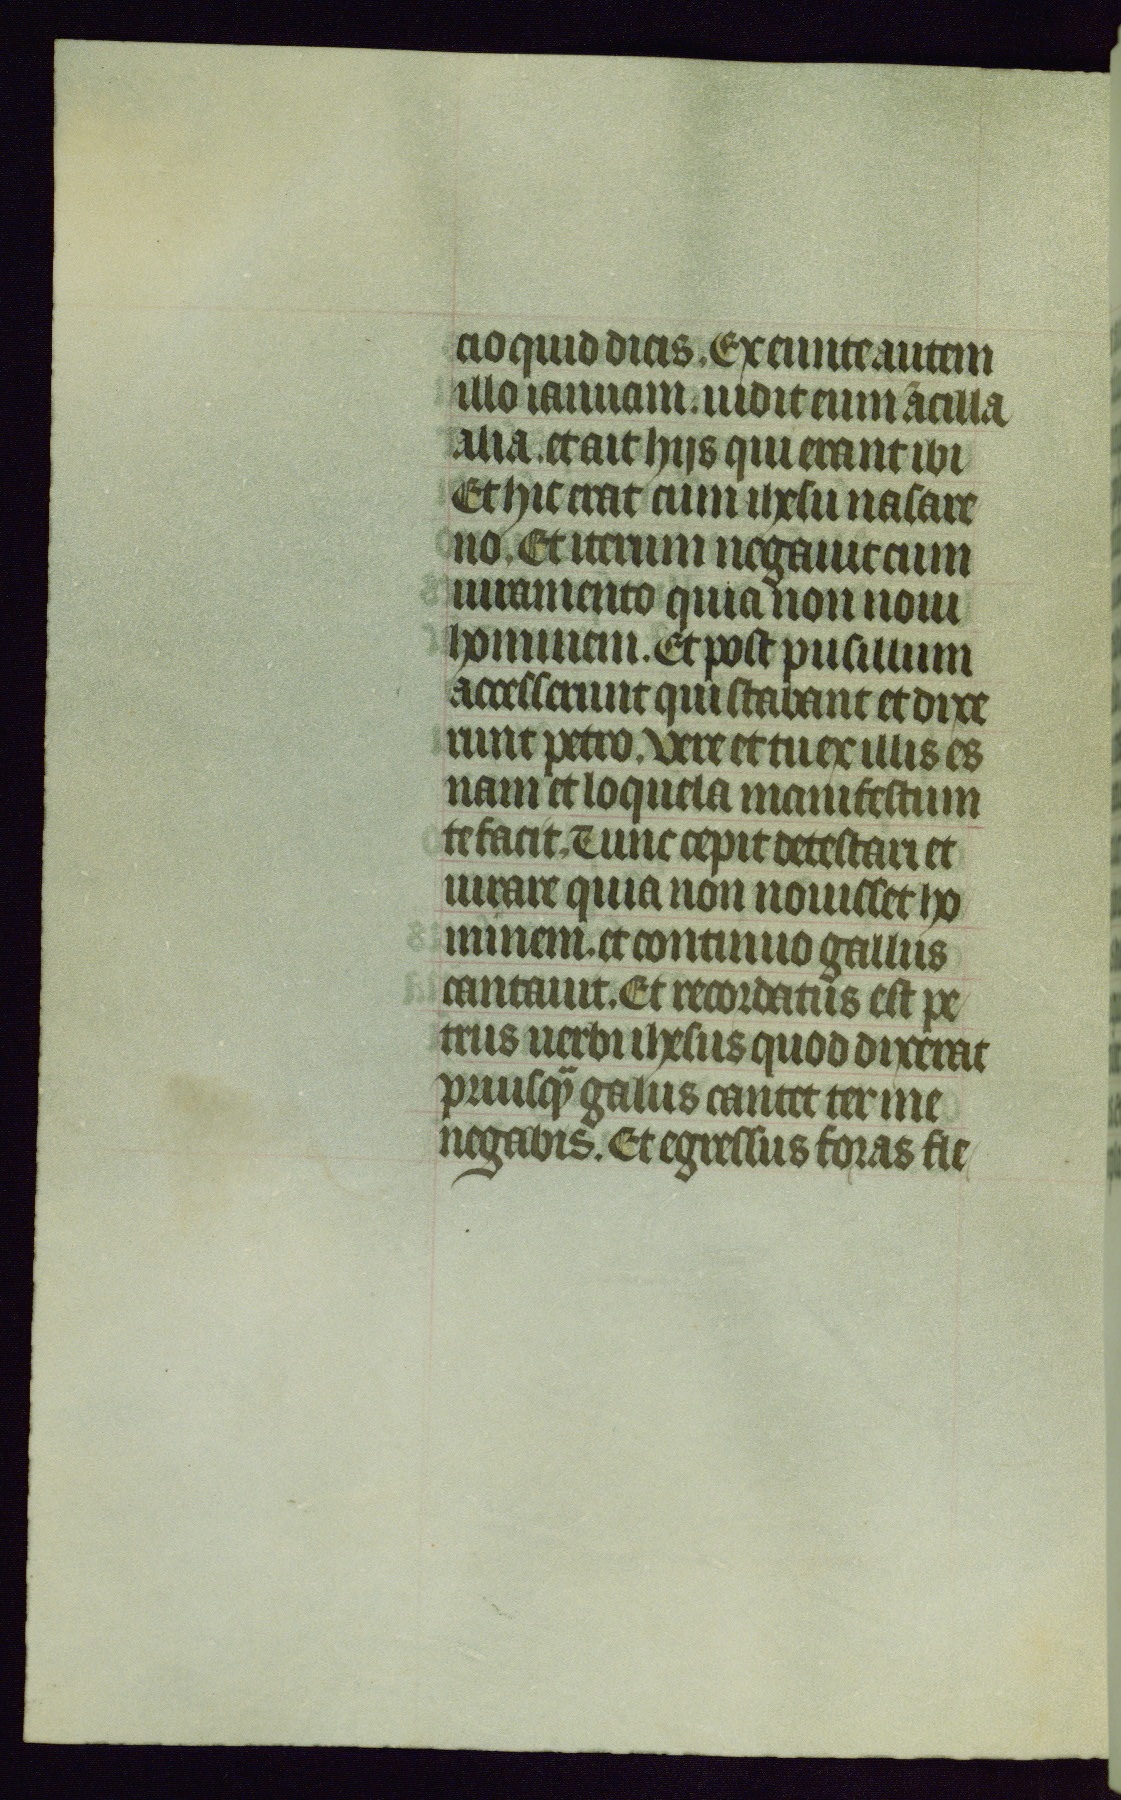 cio quid dicis. Exeunte autem
illo ianuam. uidit eum ācilla
alia. et ait hijs qui erant ibi
Et hic erat cum ihesu nasare
no. Et iterum negauit cum
iuramento quia non noui
hominem. Et post pusillum
accesserunt qui stabant et dixe
runt petro. Vere et tu ex illis es
nam et loquela manifestum
te facit. Tunc cepit detestari et
iurare quia non nouisset ho
minem. et continuo gallus
cantauit. Et recordatus est pe
trus uerbi ihesus quod dixerat
priusq̄ galus cantet ter me
negabis. Et egressus foras fle